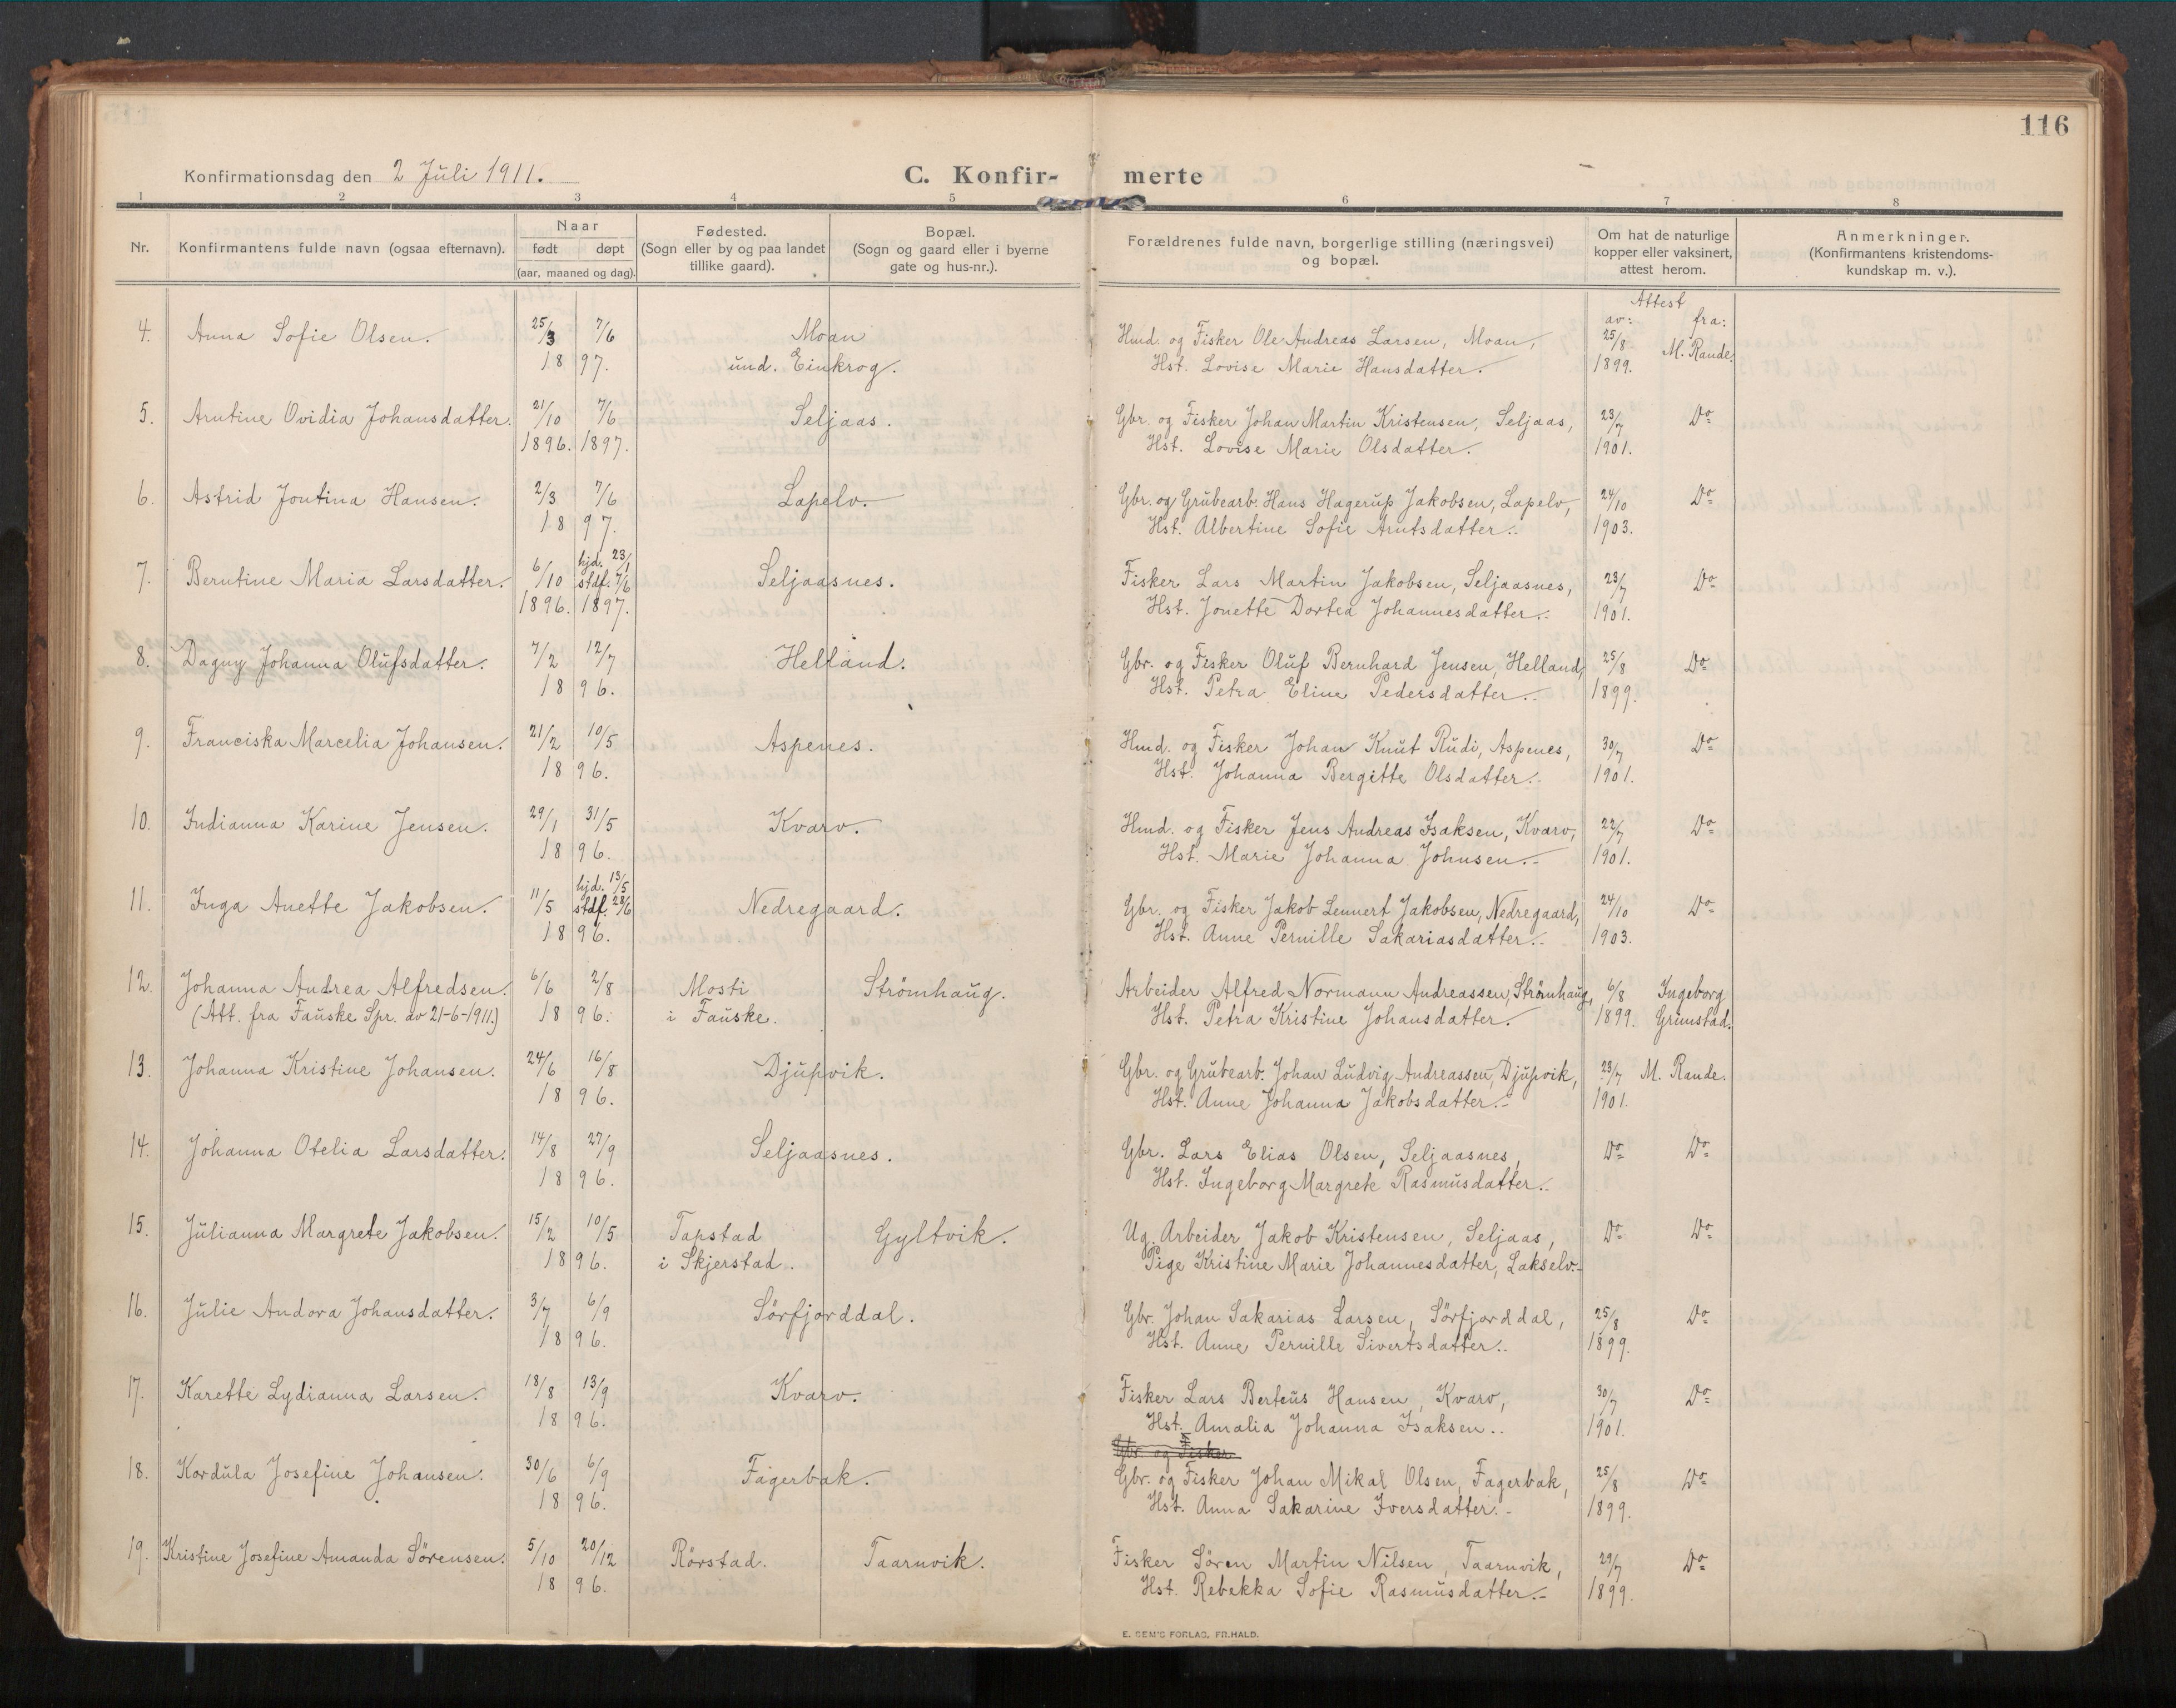 116
Konfirmationsdag den 2 Juli 1911.
C. Konfir- merte
1 2 3 4 5 6 7 8
Nr.
Konfirmantens fulde navn (ogsaa efternavn).
Naar
født døpt
(aar, maaned og dag).
Fødested.
(Sogn eller by og paa landet
tillike gaard).
Bopæl.
(Sogn og gaard eller i byerne
gate og hus-nr.).
Forældrenes fulde navn, borgerlige stilling (næringsvei)
og bopæl.
Om hat de naturlige
kopper eller vaksinert,
attest herom.
Anmerkninger.
(Konfirmantens kristendoms-
kundskap m. v.).
Attest
av: fra:
4. Anna Sofie Olsen. 25/3 7/6 Moan Hmd. og Fisker Ole Andreas Larsen, Moan, 25/8 M. Rande.
1897. und. Einkrog. Hst. Lovise Marie Hansdatter. 1899.
5. Arntine Ovidia Johansdatter. 21/10 7/6 Seljaas. Gbr. og Fisker Johan Martin Kristensen, Seljaas, 23/7 Do
1896. 1897. Hst. Lovise Marie Olsdatter. 1901.
6. Astrid Jontina Hansen. 2/3 7/6 Lapelv. Gbr. og Grubearb. Hans Hagerup Jakobsen, Lapelv, 24/10 Do
1897. Hst. Albertine Sofie Arntsdatter. 1903.
7. Berntine Maria Larsdatter. 6/10 hjd. 23/1 stdf. 7/6 Seljaasnes. Fisker Lars Martin Jakobsen, Seljaasnes, 23/7 Do
1896. 1897. Hst. Jonette Dortea Johannesdatter. 1901.
8. Dagny Johanna Olufsdatter. 7/2 12/7 Helland. Gbr. og Fisker Oluf Bernhard Jensen, Helland, 25/8 Do
1896. Hst. Petra Eline Pedersdatter. 1899.
9. Franciska Marcelia Johansen. 21/2 10/5 Aspenes. Hmd. og Fisker Johan Knut Rudi, Aspenes, 30/7 Do
1896. Hst. Johanna Bergitte Olsdatter. 1901.
10. Indianna Karine Jensen. 29/1 31/5 Kvarv. Hmd. og Fisker Jens Andreas Isaksen, Kvarv, 22/7 Do
1896. Hst. Marie Johanna Johnsen. 1901.
11. Inga Anette Jakobsen. 11/5 hjd. 13/5 stdf. 28/6 Nedregaard. Gbr. og Fisker Jakob Lennert Jakobsen, Nedregaard, 24/10 Do
1896. Hst. Anne Pernille Sakariasdatter. 1903.
12. Johanna Andrea Alfredsen. 6/6 2/8 Mosti Strömhaug. Arbeider Alfred Normann Andreassen, Strömhaug, 6/8 Ingeborg
(Att. fra Fauske Spr. av 21-6-1911.) 1896. i Fauske. Hst. Petra Kristine Johansdatter. 1899. Grimstad.
13. Johanna Kristine Johansen. 24/6 16/8 Djupvik. Gbr. og Grubearb. Johan Ludvig Andreassen, Djupvik, 23/7 M. Rande.
1896. Hst. Anne Johanna Jakobsdatter. 1901.
14. Johanna Otelia Larsdatter. 14/8 27/9 Seljaasnes. Gbr. Lars Elias Olsen, Seljaasnes, Do Do
1896. Hst. Ingeborg Margrete Rasmusdatter.
15. Julianna Margrete Jakobsen. 15/2 10/5 Tapstad Gyltvik. Ug. Arbeider Jakob Kristensen, Seljaas, Do Do
1896. i Skjerstad. Pige Kristine Marie Johannesdatter, Lakselv.
16. Julie Andora Johansdatter. 3/7 6/9 Sörfjorddal. Gbr. Johan Sakarias Larsen, Sörfjorddal, 25/8 Do
1896. Hst. Anne Pernille Sivertsdatter. 1899.
17. Karette Lydianna Larsen. 18/8 13/9 Kvarv. Fisker Lars Berteus Hansen, Kvarv, 30/7 Do
1896. Hst. Amalia Johanna Isaksen. 1901.
Gbr. og Fisker
18. Kordula Josefine Johansen. 30/6 6/9 Fagerbak. Gbr. og Fisker Johan Mikal Olsen, Fagerbak, 25/8 Do
1896. Hst. Anna Sakarine Iversdatter. 1899.
19. Kristine Josefine Amanda Sörensen. 5/10 20/12 Rörstad. Taarnvik. Fisker Sören Martin Nilsen, Taarnvik, 29/7 Do
1896. Hst. Rebekka Sofie Rasmusdatter. 1899.
E. SEM'S FORLAG, FR.HALD.